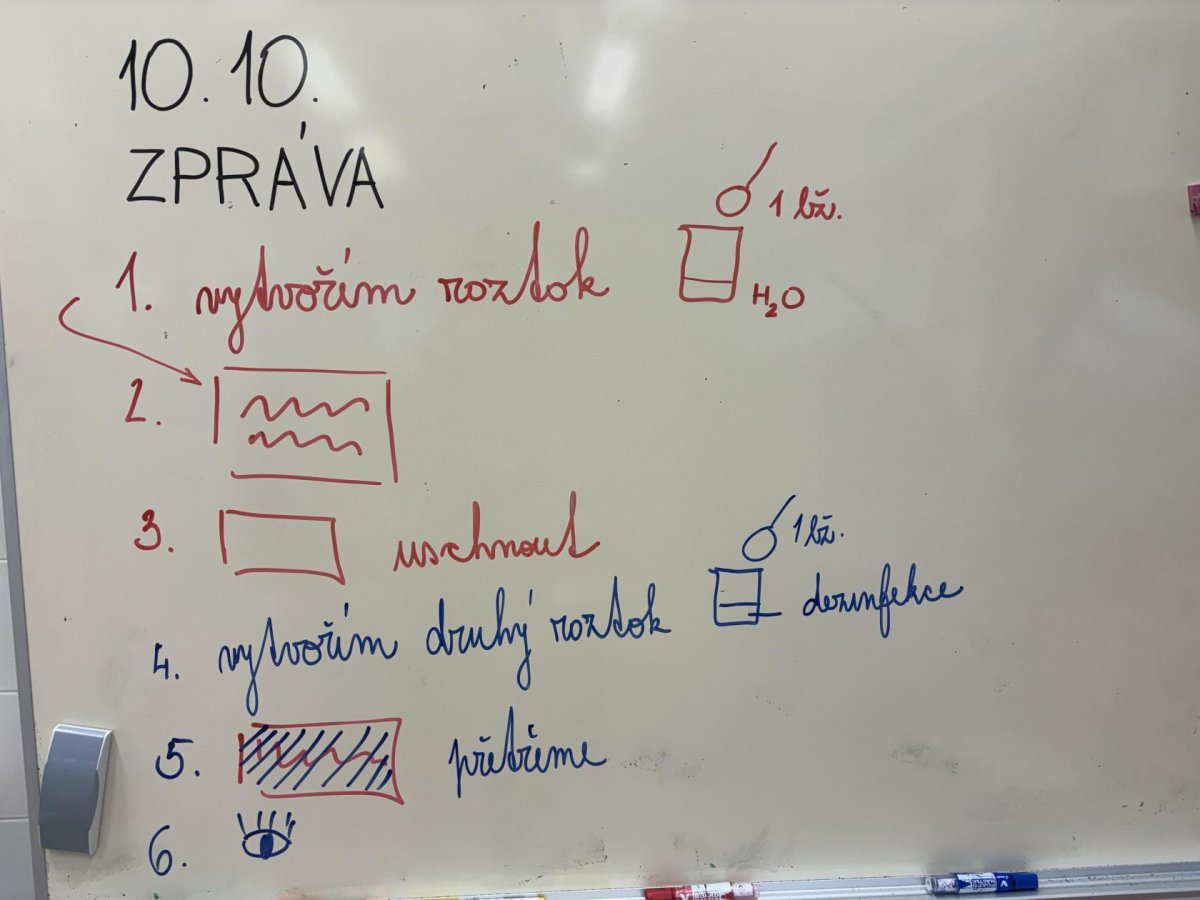 10. 10.
ZPRÁVA
1 lž.
1. vytvořím roztok
H₂O
2.
3. uschnout
1 lž.
4. vytvořím druhý roztok dezinfekce
5. přetřeme
6.